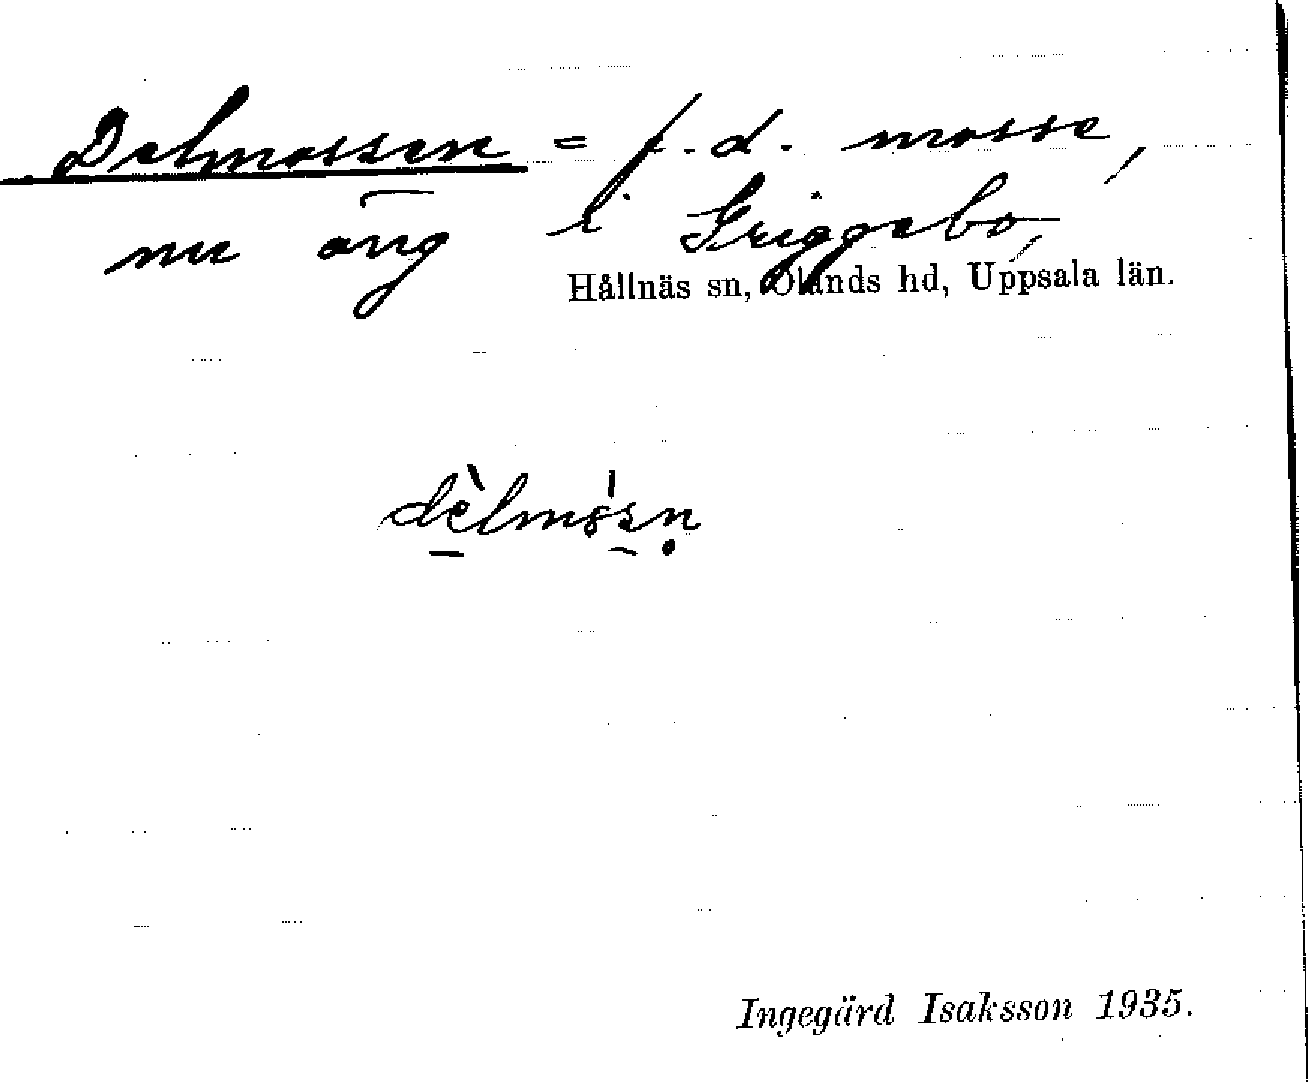 Delmossen = f.d. mosse,
nu äng i Griggebo,
Hållnäs sn, Olands hd, Uppsala län.
dèlmòsn̥
Ingegärd Isaksson 1935.